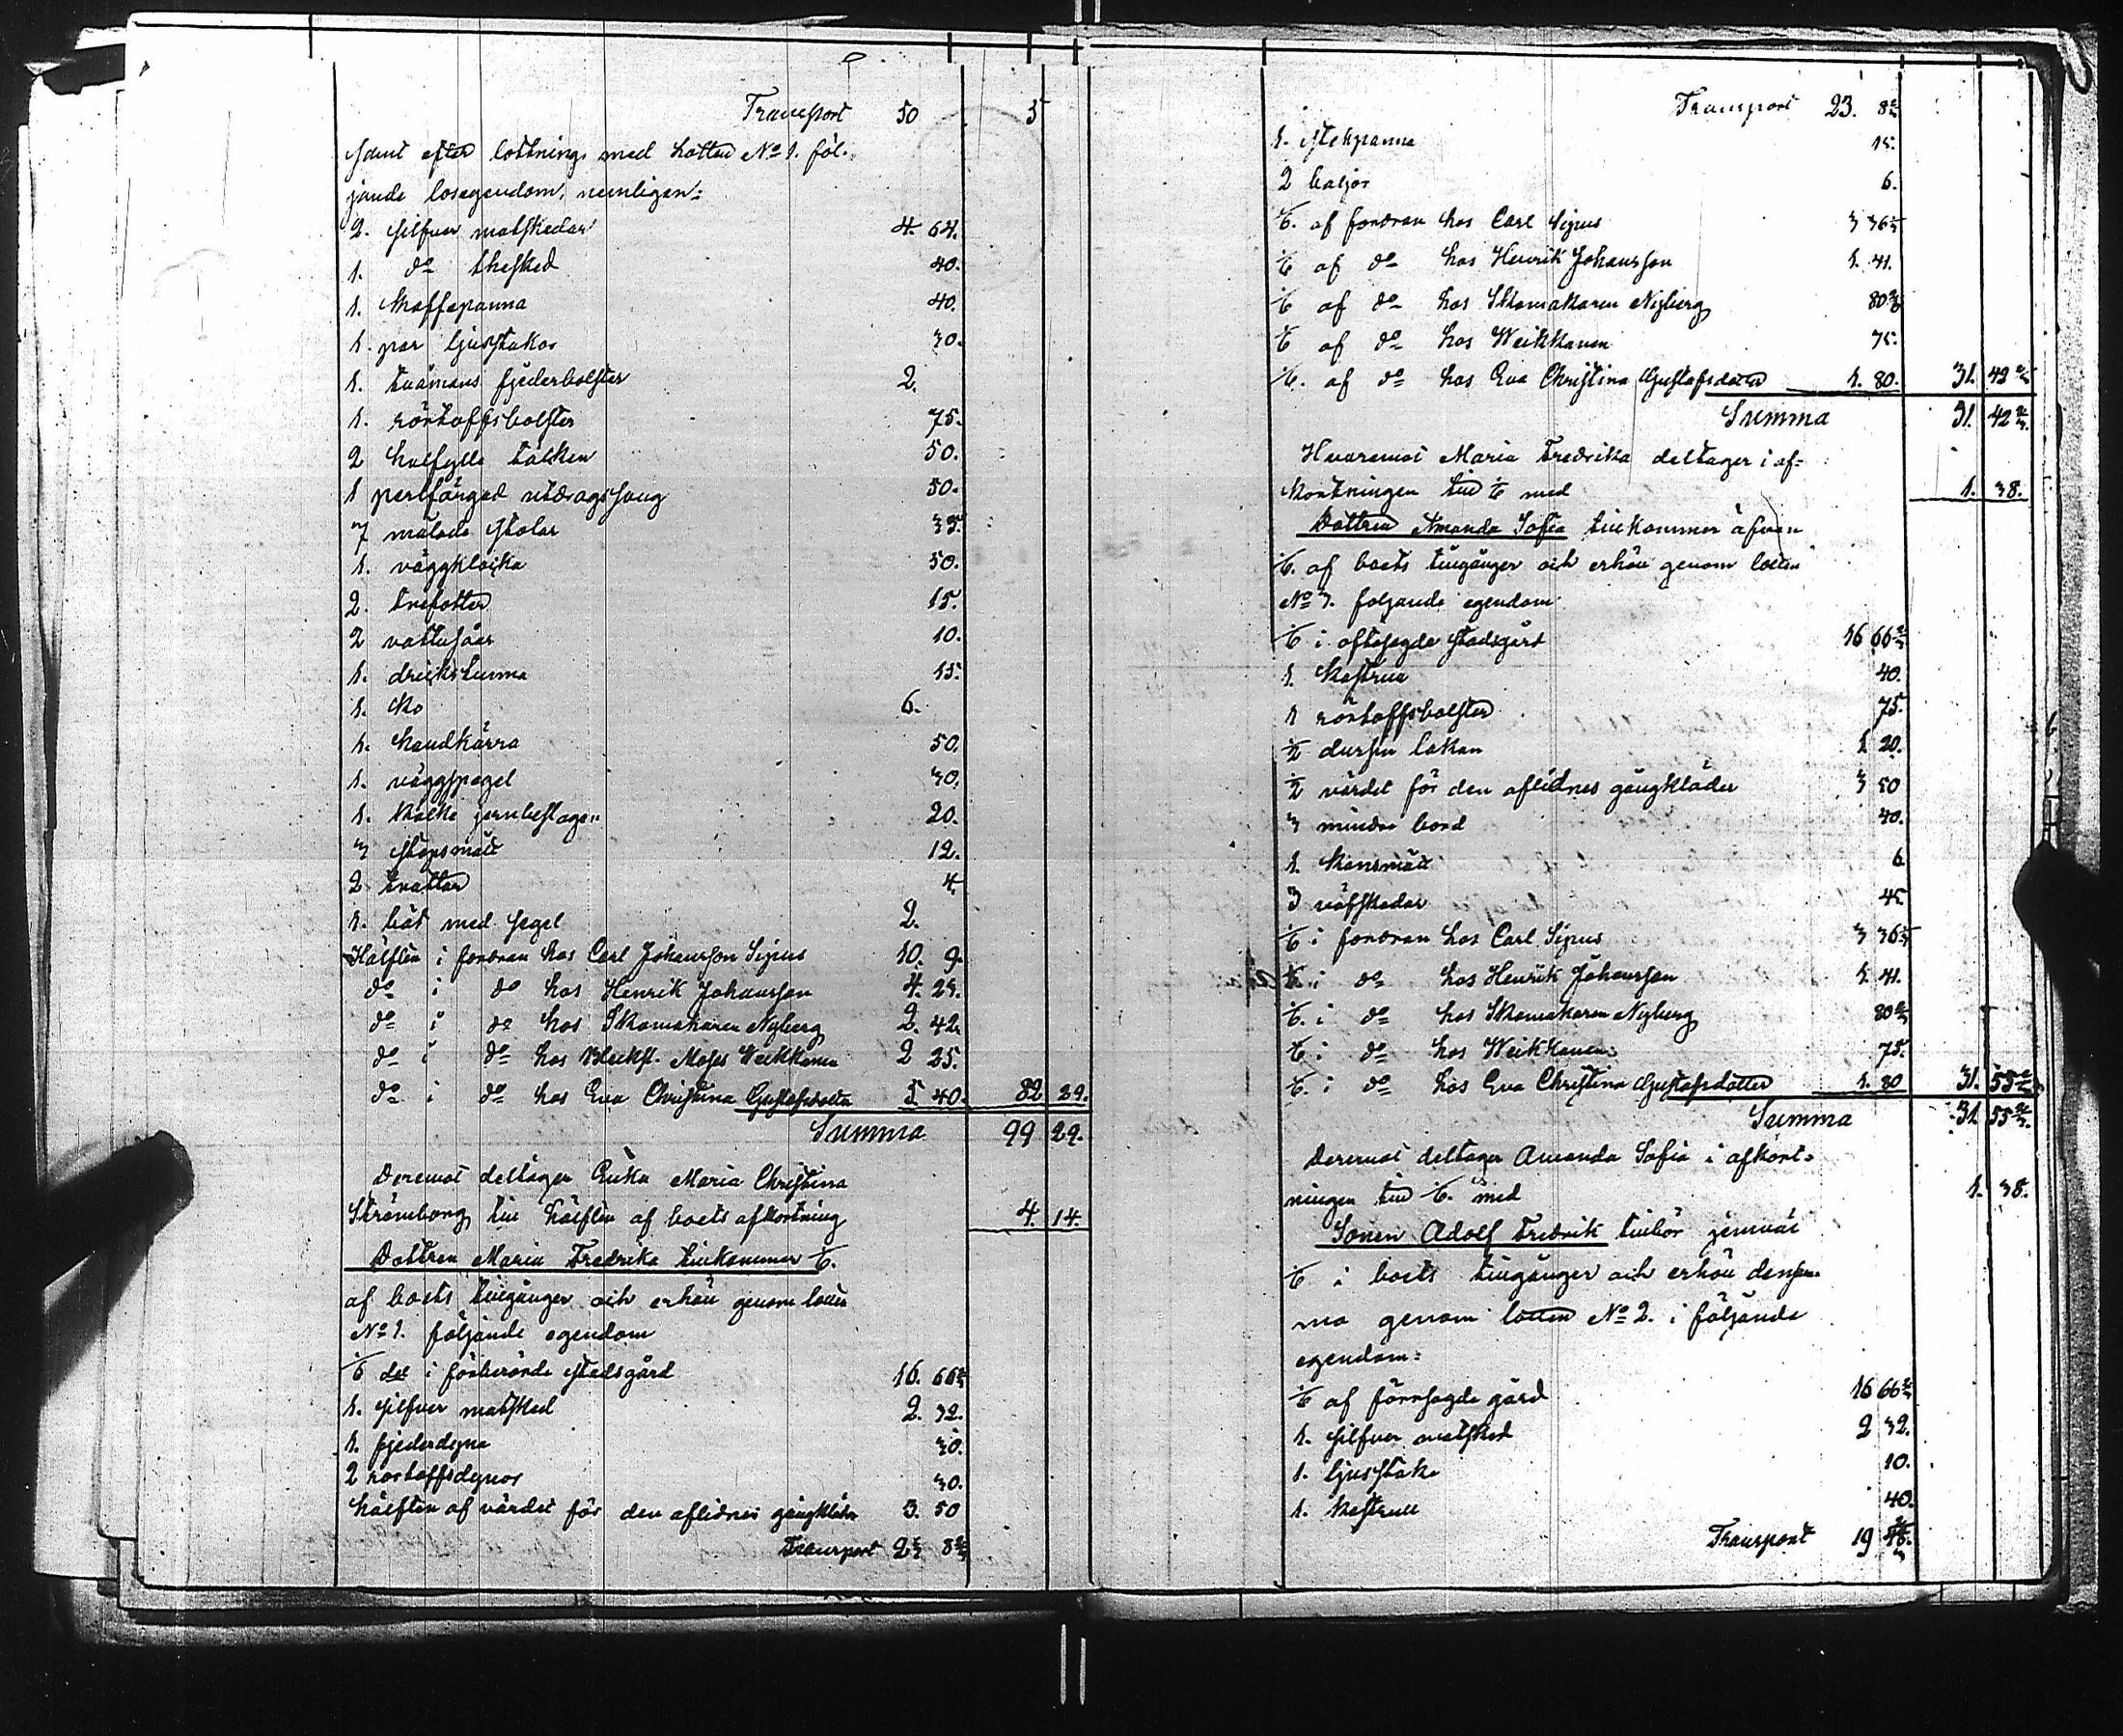 Transport 50 5
samt efter lottning med Lotten No 1. föl-
jande lösegendom, nemligen:
2. silfver matskedar 4. 64.
1. do thesked 40.
1. Kaffepanna 40.
1. par ljusstakar 30.
1. tvåmans fjederbolster 2.
1. rörtoffsbolster 75.
2 halfylle täcken 50.
1 perlfärgad utdragssäng 50.
7 målade stolar 35.
1. väggklocka 50.
2. trefötter 15.
2 vattusåar 10.
1. drickstunna 15.
1. Ko 6.
1. handkärra 50.
1. väggspegel 30.
1. Kälke jernbeslagen 20.
3 stopsmått 12.
2 trattar 4.
1. båt med segel 2.
Hälften i fordran hos Carl Johansson Sipus 10. 9.
do i do hos Henrik Johansson 4. 23.
do i do hos Skomakaren Nyberg 2. 42.
do i do hos Blecksl. Moses Weikkanen 2 25.
do i do hos Eva Christina Gustafsdotter 5. 40. 82 29.
Summa 99 29.
Deremot deltager Enkan Maria Christina
Strömborg till hälften af boets afkortning 4. 14.
Dottren Maria Fredrika tillkommer 1/6.
af boets tillgånger och erhåll genom lotten
No 1. följande egendom
1/6 del i förberörde stadsgård 16. 66 2/3
1. silfver matsked 2. 32.
1. fjederdyna 30.
2 rörtoffsdynor 30.
hälften af värdet för den aflidnes gångkläder 3. 50
Transport 23 8 2/3
Transport 23. 8 2/3
1. stekpanna 15.
2 baljor 6.
1/6. af fordran hos Carl Sipus 3 36 1/3
1/6 af do hos Henrik Johansson 1. 41.
1/6 af do hos Skomakaren Nyberg 80 2/3
1/6 af do hos Weikkanen 75.
1/6. af do hos Eva Christina Gustafsdotter 1. 80. 31. 42 2/3
Summa 31. 42 2/3.
Hvaremot Maria Fredrika deltager i af-
kortningen till 1/6 med 1. 38.
Dottren Amanda Sofia tillkommer äfven
1/6. af boets tillgånger och erhåll genom lotten
No 3. följande egendom
1/6 i oftasagde stadsgård 16 66 2/3
1. Kastrull 40.
1 rörtoffsbolster 75.
1/2 dussin lakan 1 20.
1/2 värdet för den aflidnes gångkläder 3 50
3 mindre bord 40.
1. Kansmått 6
3 väfskedar 45
1/6 i fordran hos Carl Sipus 3 36 1/3
1/6 i do hos Henrik Johansson 1. 41.
1/6. i do hos Skomakaren Nyberg 80 2/3
1/6 i do hos Weikkanen 75.
1/6. i do hos Eva Christina Gustafsdotter 1. 80 31. 55 2/3
Summa 31. 55 2/3.
Deremot deltager Amanda Sofia i afkort-
ningen till 1/6. med 1. 38.
Sonen Adolf Fredrik tillhör jemväl
1/6 i boets tillgånger och erhåll densam-
ma genom lotten No 2. i följande
egendom:
1/6 af förrsagde gård 16 66 2/3
1. silfver matsked 2 32.
1. ljusstake 10.
1. Kastrull 40.
Transport 19 48. 2/3